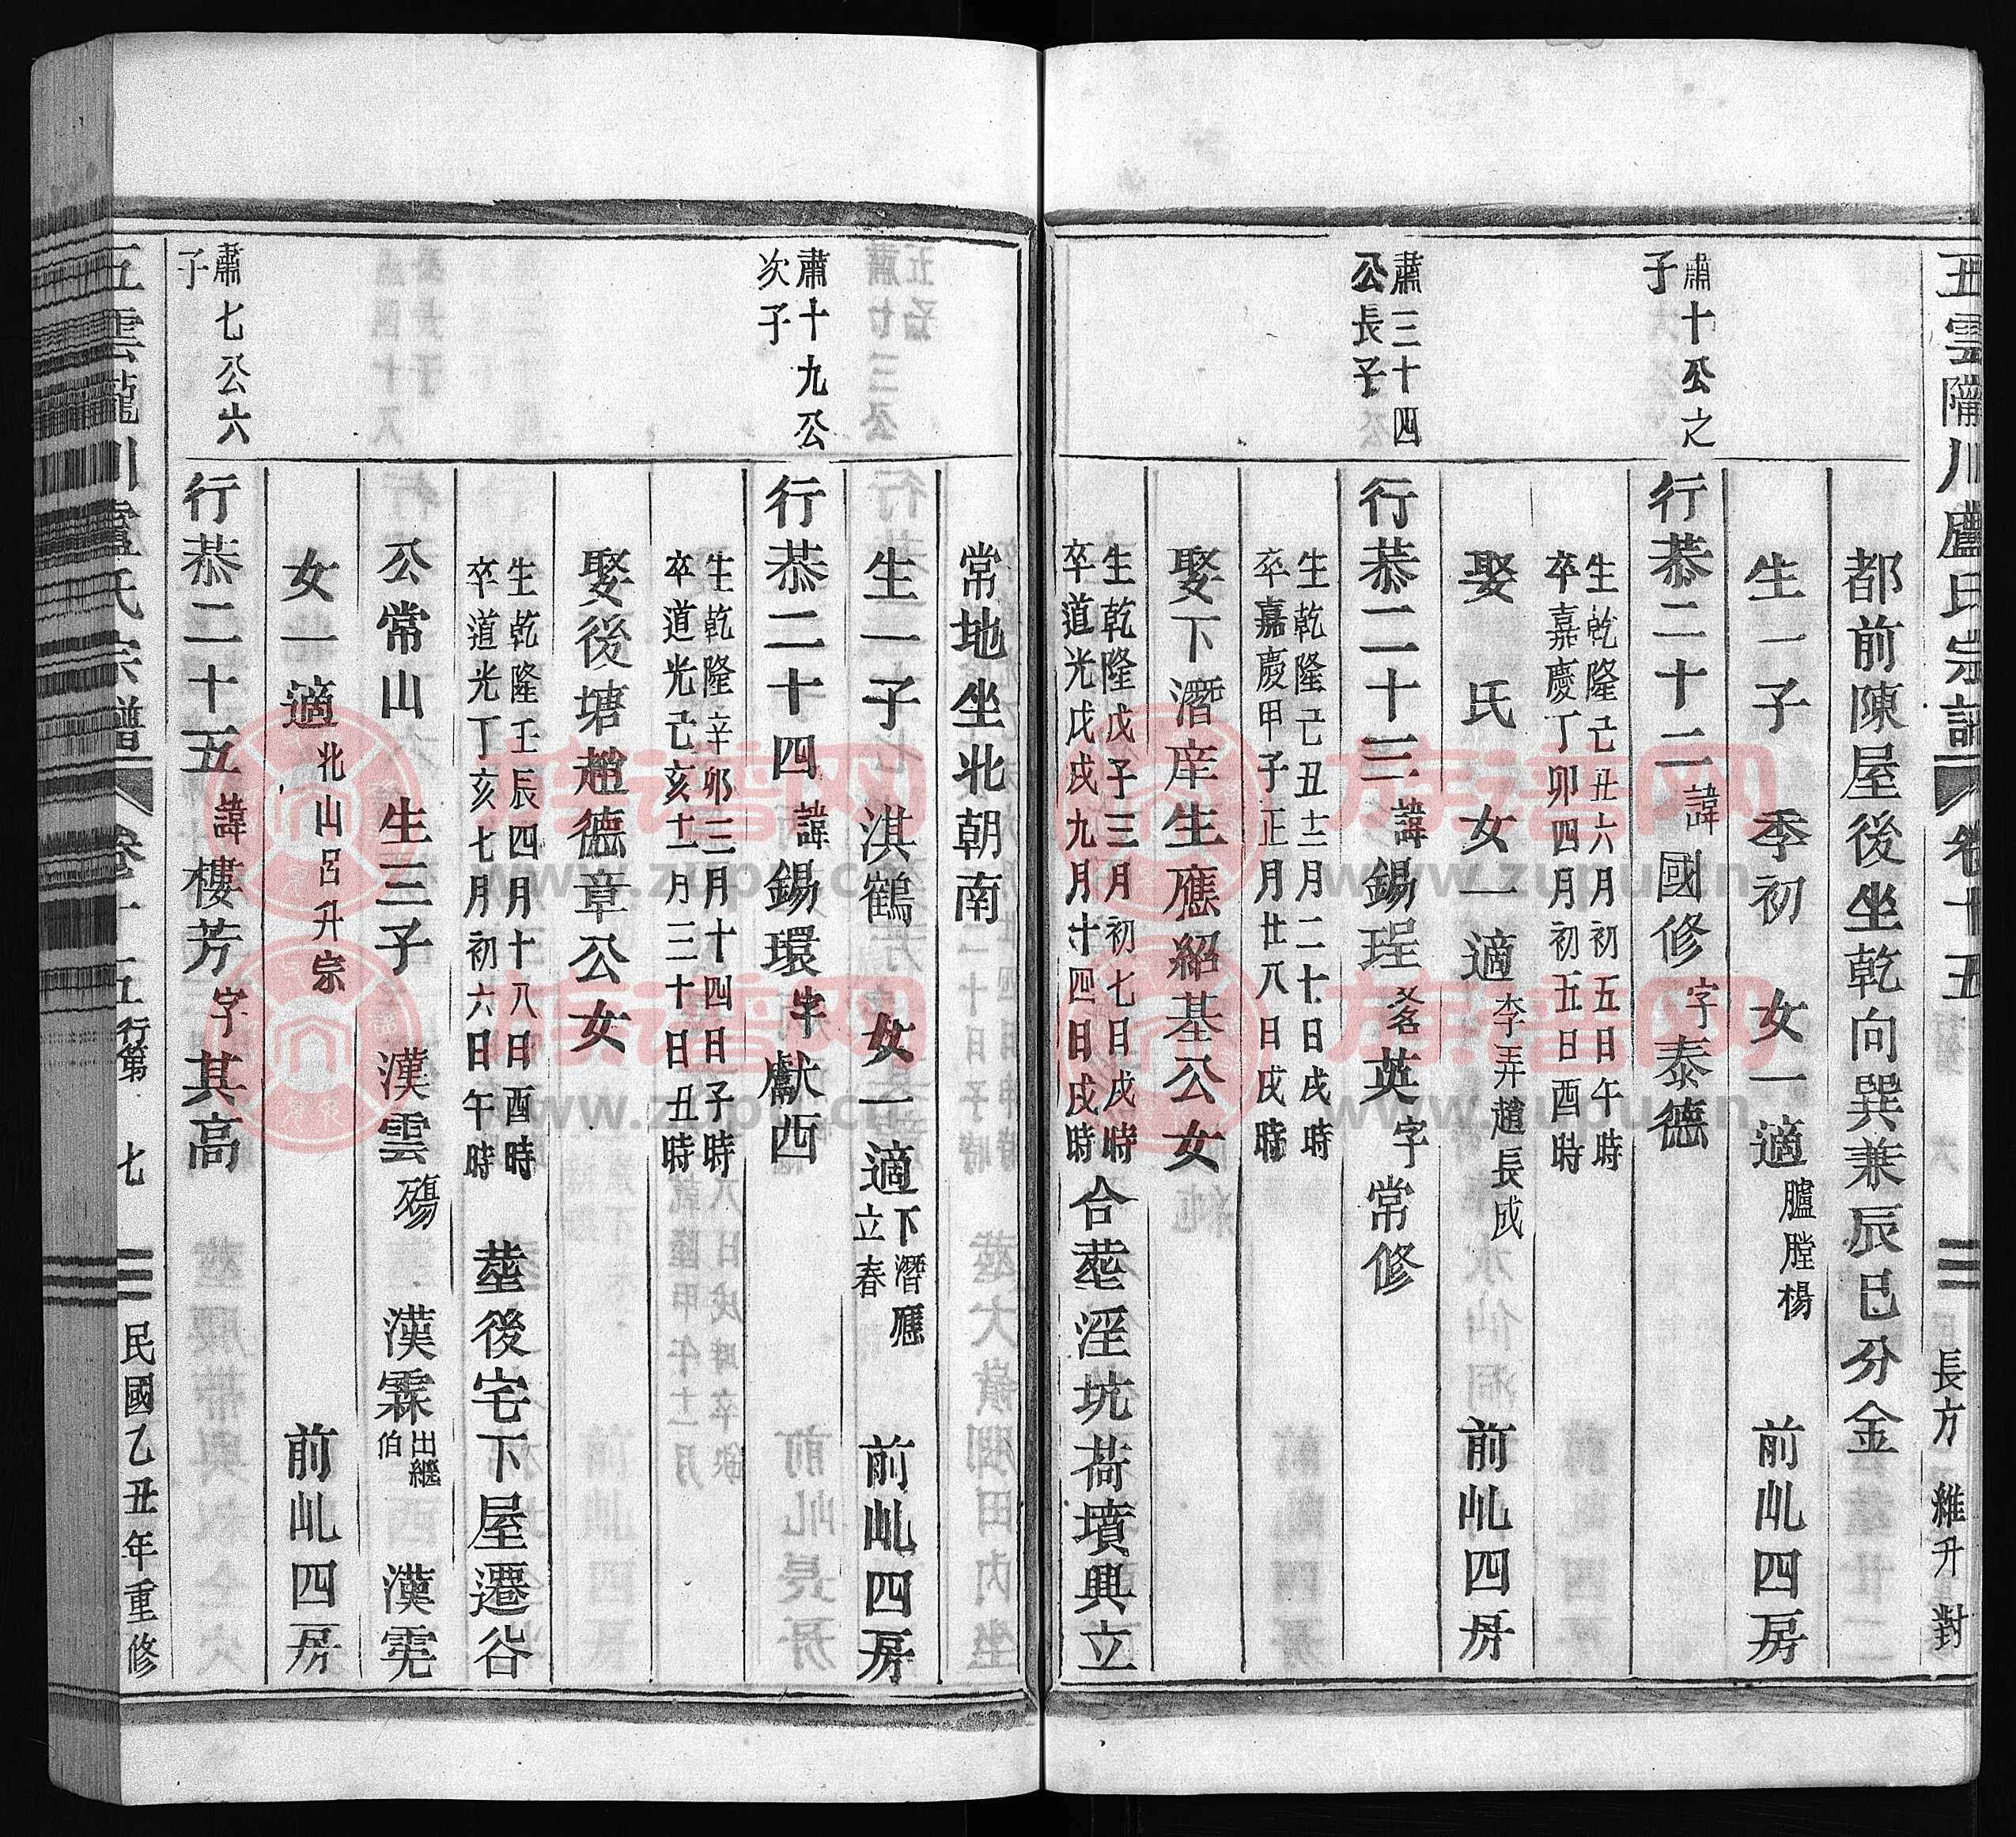 五雲隴川盧氏宗譜 卷十五 長方 維升 對
都前陳屋後坐乾向巽兼辰巳分金
生一子 季初 女一適臚膛楊 前屾四房
肅十公之子
行恭二十二諱國修字泰德
生乾隆己丑六月初五日午時
卒嘉慶丁卯四月初五日酉時
娶 氏 女一適李弄趙長成 前屾四房
肅三十四公長子
行恭二十三諱錫珵又名英字常修
生乾隆己丑十二月二十日戌時
卒嘉慶甲子正月廿八日戌時
娶下潛庠生應紹基公女
生乾隆戊子三月初七日戌時
卒道光戊戌九月十四日戌時
合塟淫坑荷墳興立
常地坐北朝南
生一子 淇鶴 女一適下潛應立春 前屾四房
肅十九公次子
行恭二十四諱錫環字獻西
生乾隆辛卯三月十四日子時
卒道光己亥十一月二十日丑時
娶後塘趙德章公女
生乾隆壬辰四月十八日酉時
卒道光丁亥七月初六日午時
塟後宅下屋遷谷
公常山 生三子 漢雲殤 漢霖出繼伯 漢霓
女一適北山呂升宗 前屾四房
肅七公六子
行恭二十五諱樓芳字其高
五雲隴川盧氏宗譜 卷十五 行第 七 民國乙丑年重修
族谱网
www.zupu.cn